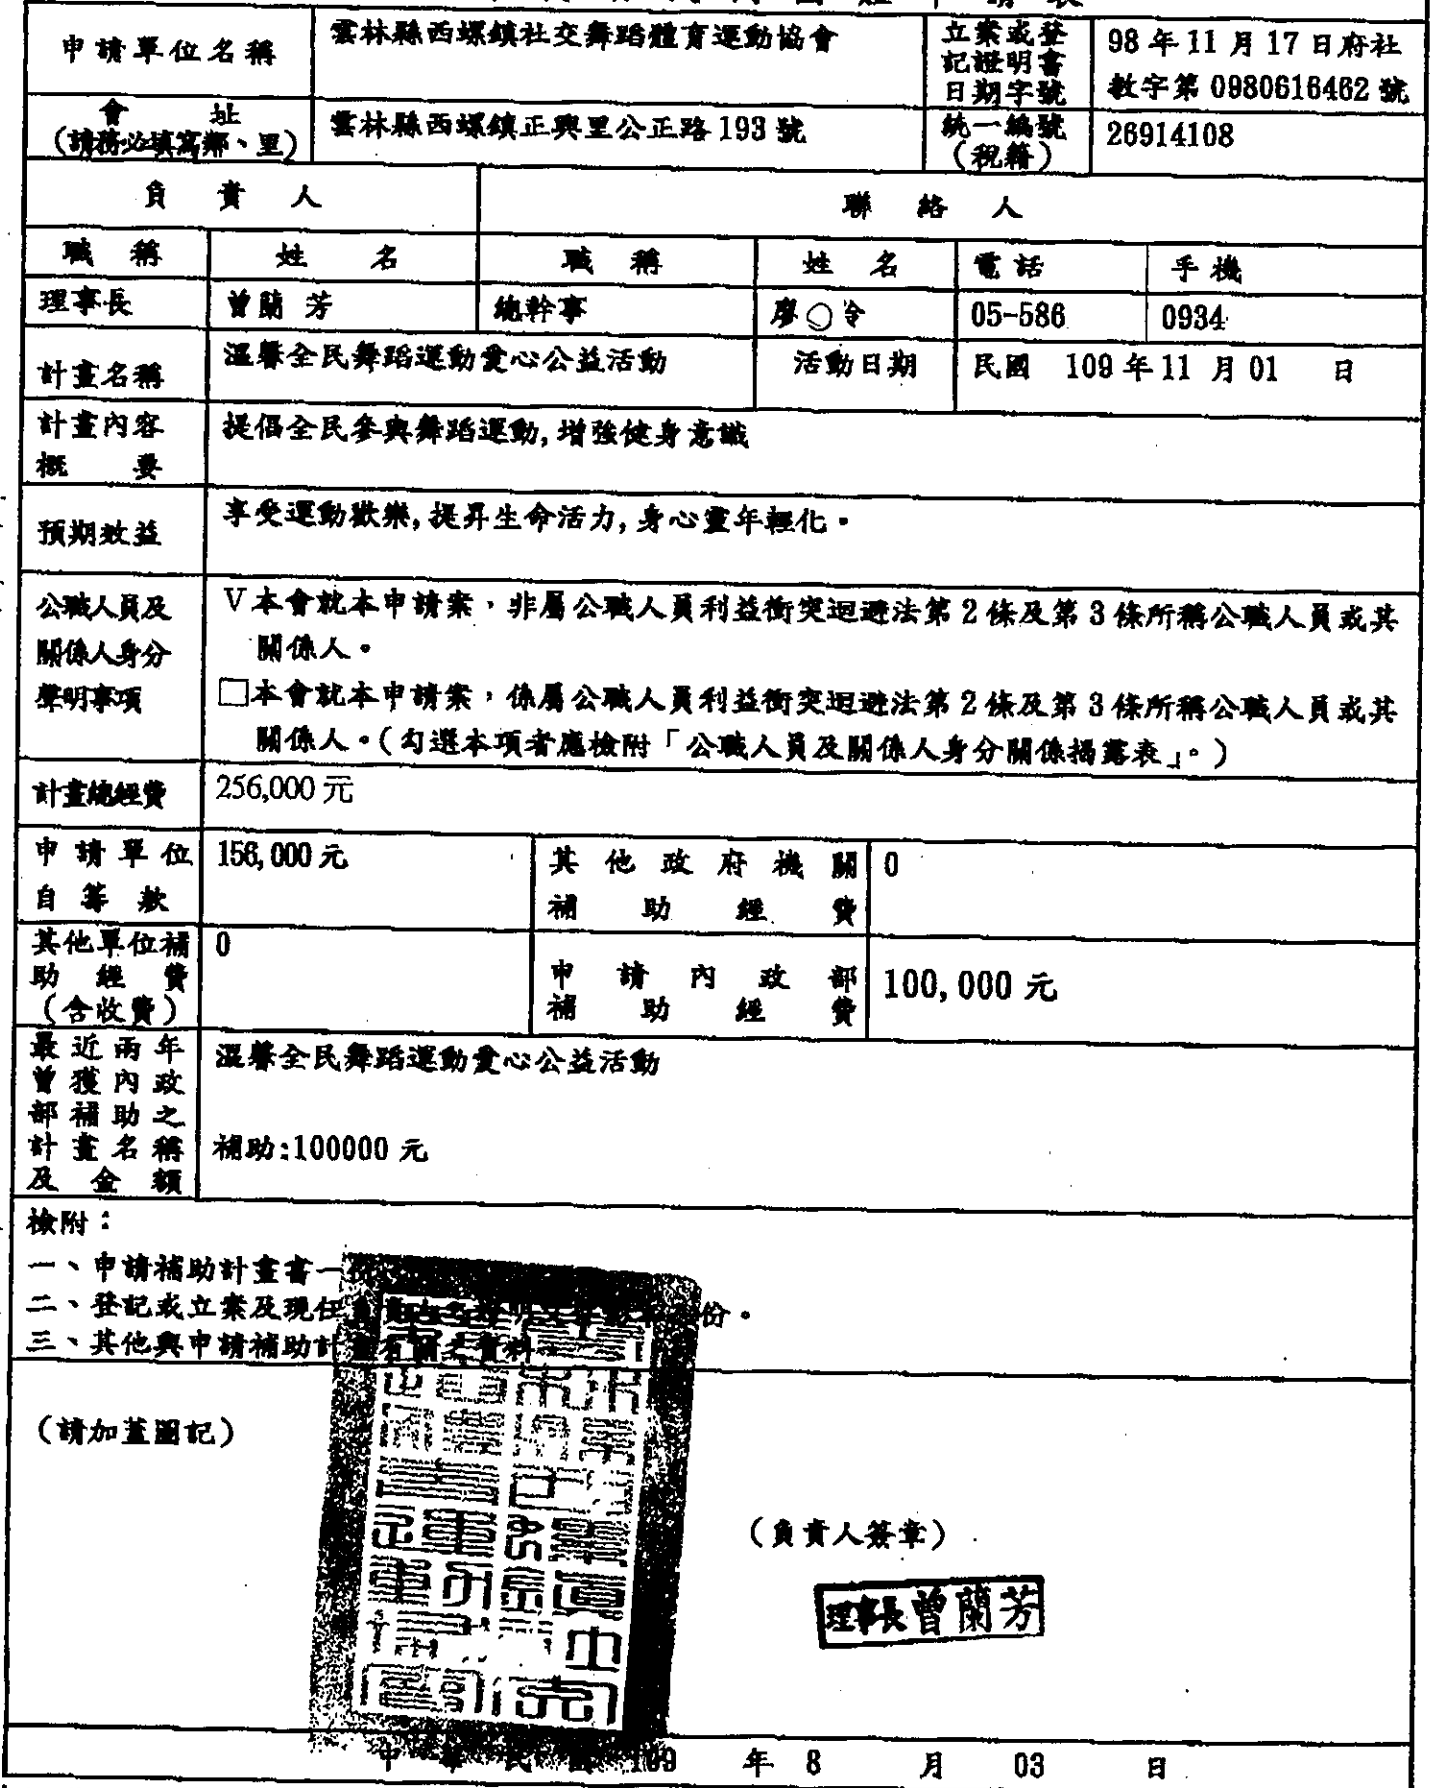 申請單位名稱
雲林縣西螺鎮社交舞蹈體育運動協會
立案或登
記證明書
日期字號
98 年 11 月 17 日府社
教字第 0980616462 號
會 址
(請務必填寫鄰、里)
雲林縣西螺鎮正興里公正路 193 號
統一編號
(稅籍)
26914108
負 責 人
聯 絡 人
職 稱
姓 名
職 稱
姓 名
電 話
手 機
理事長
曾蘭 芳
總幹事
廖○伶
05-586
0934
計畫名稱
溫馨全民舞蹈運動愛心公益活動
活動日期
民國 109 年 11 月 01 日
計畫內容
概 要
提倡全民參與舞蹈運動,增強健身意識
預期效益
享受運動歡樂,提昇生命活力,身心靈年輕化。
公職人員及
關係人身分
聲明事項
V本會就本申請案,非屬公職人員利益衝突迴避法第 2 條及第 3 條所稱公職人員或其
關係人。
□本會就本申請案,係屬公職人員利益衝突迴避法第 2 條及第 3 條所稱公職人員或其
關係人。(勾選本項者應檢附「公職人員及關係人身分關係揭露表」。)
計畫總經費
256,000 元
申請單位
自 籌 款
156,000 元
其他政府機關
補 助 經 費
0
其他單位補
助 經 費
(含收費)
0
申 請 內 政 部
補 助 經 費
100,000 元
最近兩年
曾獲內政
部補助之
計畫名稱
及 金 額
溫馨全民舞蹈運動愛心公益活動
補助:100000 元
檢附:
一、申請補助計畫書一份
二、登記或立案及現任 份。
三、其他與申請補助計畫有關之資料
(請加蓋圖記)
(負責人簽章)
理事長曾蘭芳
中 華 民 國 109 年 8 月 03 日